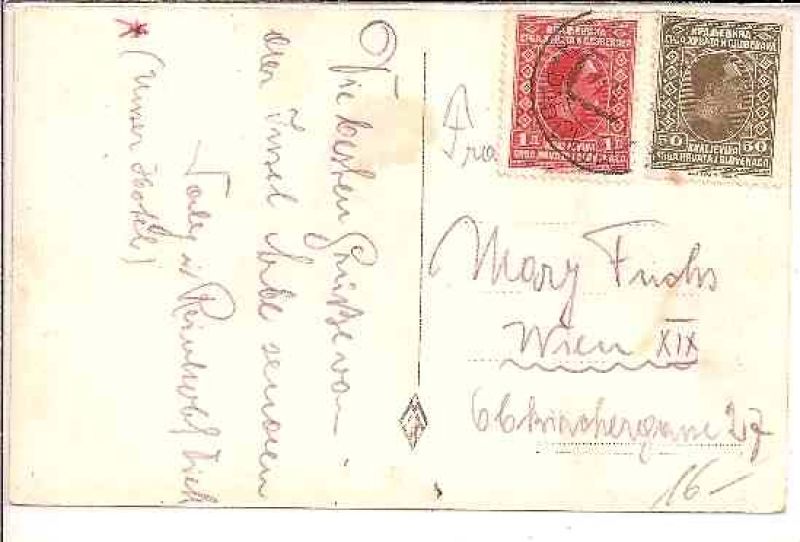 Die besten Grüße von
der Insel senden
Reinhold
* (Unser Hotel)
КРАЉЕВИНА
СРБА, ХРВАТА И СЛОВЕНАЦА
1 Д 1 Д
KRALJEVINA
SRBA, HRVATA I SLOVENACA
КРАЉЕВИНА
СРБА, ХРВАТА И СЛОВЕНАЦА
50 50
KRALJEVINA
SRBA, HRVATA I SLOVENACA
Frau
Mary Fuchs
Wien XIX
27
16-